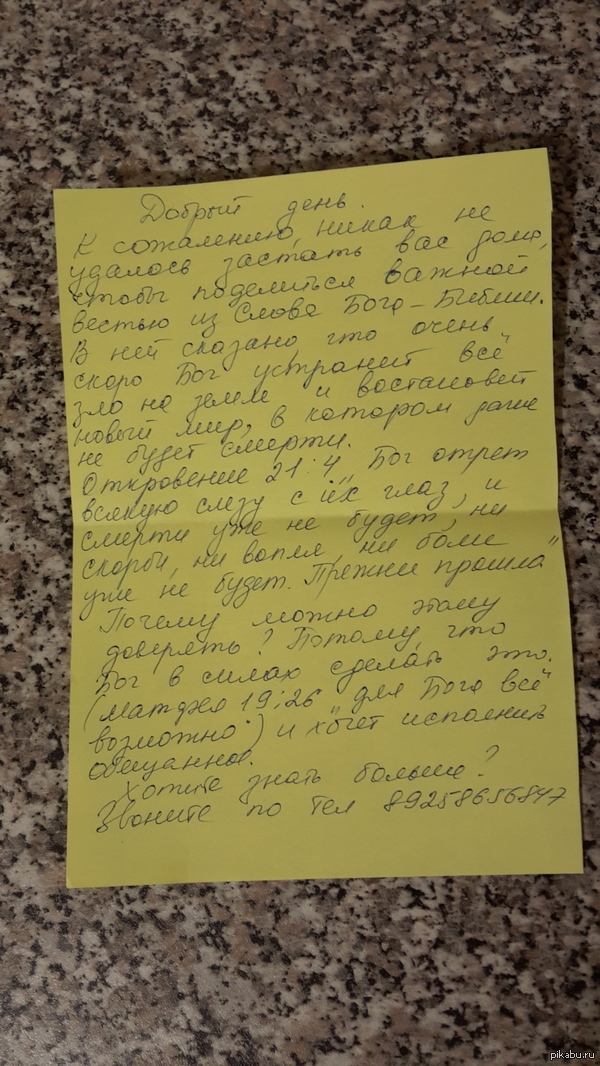 Добрый день.
К сожалению, никак не
удалось застать вас дома,
чтобы поделиться важной
вестью из Слова Бога – Библии.
В ней сказано что очень
скоро Бог устранит всё
зло на земле и востановит
новый мир, в котором даже
не будет смерти.
Откровение 21:4 „Бог отрет
всякую слезу с их глаз, и
смерти уже не будет, ни
скорби, ни вопля, ни боли
уже не будет. Прежнее прошло“
Почему можно этому
доверять? Потому, что
Бог в силах сделать это.
(Матфея 19:26 „для Бога всё
возможно“) и хочет исполнить
обещанное.
Хотите знать больше?
Звоните по тел 89258656847
pikabu.ru